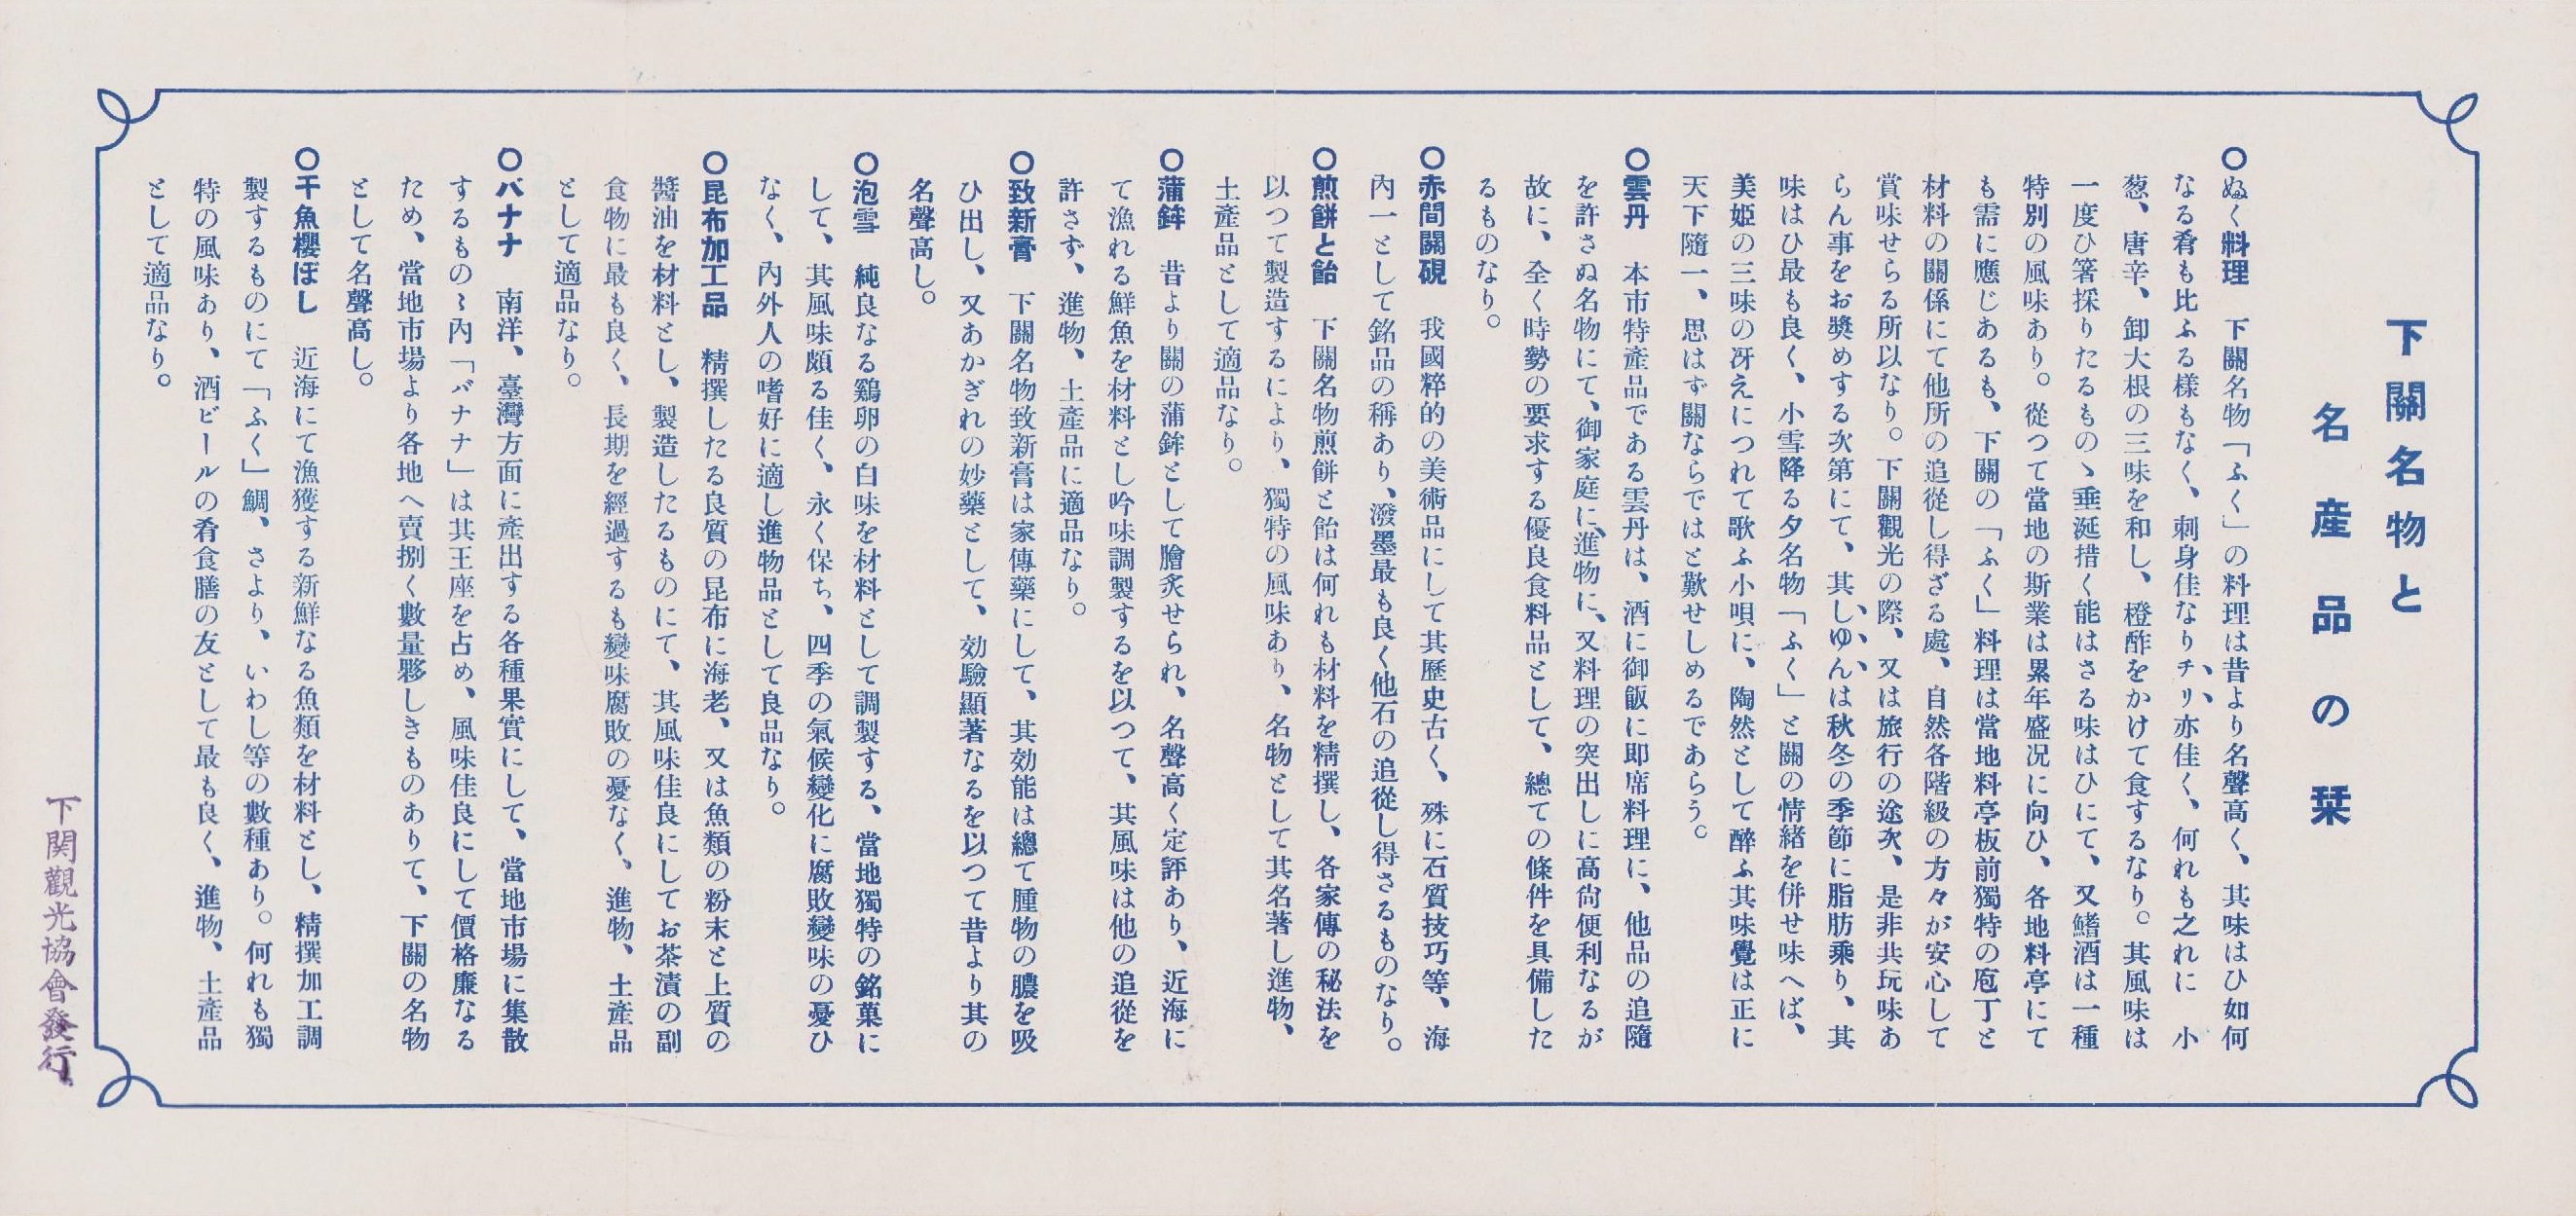 下關名物と
名産品の栞
〇ぬく料理　下關名物「ふく」の料理は昔より名聲高く、其味はひ如何
なる肴も比ふる樣もなく、刺身佳なりチリ亦佳く、何れも之れに　小
葱、唐辛、卸大根の三味を和し、橙酢をかけて食するなり。其風味は
一度ひ箸採りたるものゝ垂涎措く能はさる味はひにて、又鰭酒は一種
特別の風味あり。從つて當地の斯業は累年盛况に向ひ、各地料亭にて
も需に應じあるも、下關の「ふく」料理は當地料亭板前獨特の庖丁と
材料の關係にて他所の追從し得ざる處、自然各階級の方々が安心して
賞味せらる所以なり。下關觀光の際、又は旅行の途次、是非共玩味あ
らん事をお奬めする次第にて、其しゆんは秋冬の季節に脂肪乘り、其
味はひ最も良く、小雪降る夕名物「ふく」と關の情緒を併せ味へば、
美姫の三味の冴えにつれて歌ふ小唄に、陶然として醉ふ其味覺は正に
天下隨一、思はず關ならではと歎せしめるであらう。
〇雲丹　本市特產品である雲丹は、酒に御飯に即席料理に、他品の追隨
を許さぬ名物にて、御家庭に、進物に、又料理の突出しに高尙便利なるが
故に、全く時勢の要求する優良食料品として、總ての條件を具備した
るものなり。
〇赤間關硯　我國粹的の美術品にして其歷史古く、殊に石質技巧等、海
內一として銘品の稱あり、潑墨最も良く他石の追從し得さるものなり。
〇煎餅と飴　下關名物煎餅と飴は何れも材料を精撰し、各家傳の秘法を
以つて製造するにより、獨特の風味あり、名物として其名著し進物、
土產品として適品なり。
〇蒲鉾　昔より關の蒲鉾として膾炙せられ、名聲高く定評あり、近海に
て漁れる鮮魚を材料とし吟味調製するを以つて、其風味は他の追從を
許さず、進物、土產品に適品なり。
〇致新膏　下關名物致新膏は家傳藥にして、其効能は總て腫物の膿を吸
ひ出し、又あかぎれの妙藥として、効驗顯著なるを以つて昔より其の
名聲高し。
〇泡雪　純良なる鷄卵の白味を材料として調製する、當地獨特の銘菓に
して、其風味頗る佳く、永く保ち、四季の氣候變化に腐敗變味の憂ひ
なく、內外人の嗜好に適し進物品として良品なり。
〇昆布加工品　精撰したる良質の昆布に海老、又は魚類の粉末と上質の
醬油を材料とし、製造したるものにて、其風味佳良にしてお茶漬の副
食物に最も良く、長期を經過するも變味腐敗の憂なく、進物、土產品
として適品なり。
〇バナナ　南洋、臺灣方面に產出する各種果實にして、當地市場に集散
するものゝ內「バナナ」は其王座を占め、風味佳良にして價格廉なる
ため、當地市場より各地へ賣捌く數量夥しきものありて、下關の名物
として名聲高し。
〇干魚櫻ぼし　近海にて漁獲する新鮮なる魚類を材料とし、精撰加工調
製するものにて「ふく」鯛、さより、いわし等の數種あり。何れも獨
特の風味あり、酒ビールの肴食膳の友として最も良く、進物、土產品
として適品なり。
下関觀光協會發行